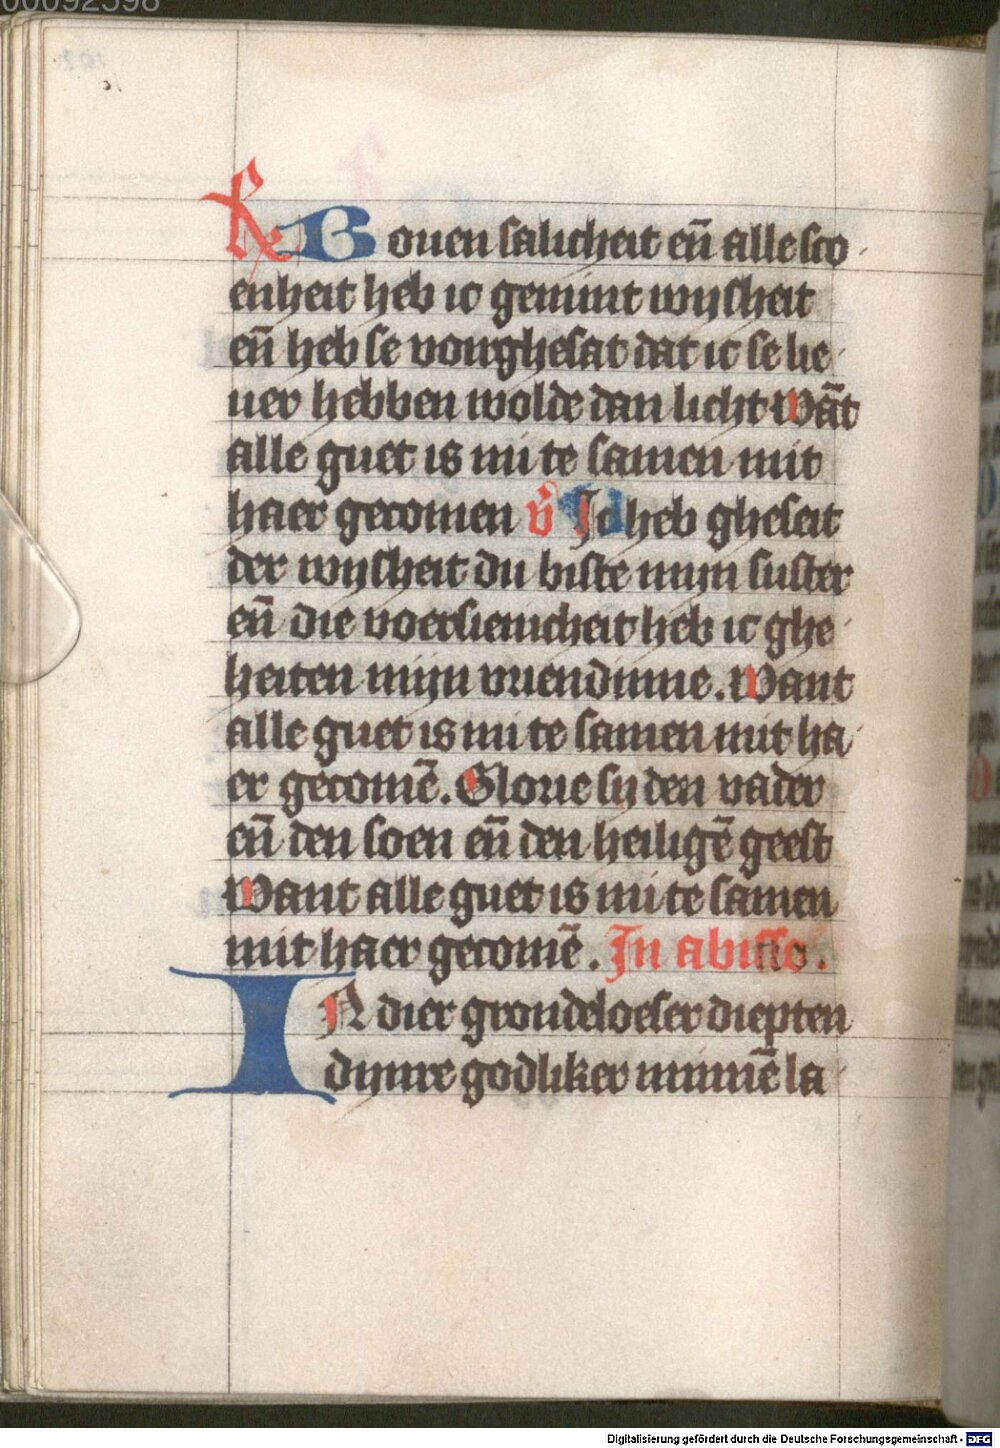 00092598
R Bouen salicheit en̄ alle sco
enheit heb ic gemint wijsheit
en̄ heb se vourghesat dat ic se lie
uer hebben wolde dan licht Wāt
alle guet is mi te samen mit
haer gecomen v̄ Ic heb gheseit
der wijsheit du biste mijn suster
en̄ die voersienicheit heb ic ghe
heiten mijn vriendinne. Want
alle guet is mi te samen mit ha
er gecomē. Glorie sy den vader
en̄ den soen en̄ den heiligē geest
Want alle guet is mi te samen
mit haer gecomē. In abisso.
IN dier grondeloeser diepten
dijnre godliker minnē la
Digitalisierung gefördert durch die Deutsche Forschungsgemeinschaft - DFG